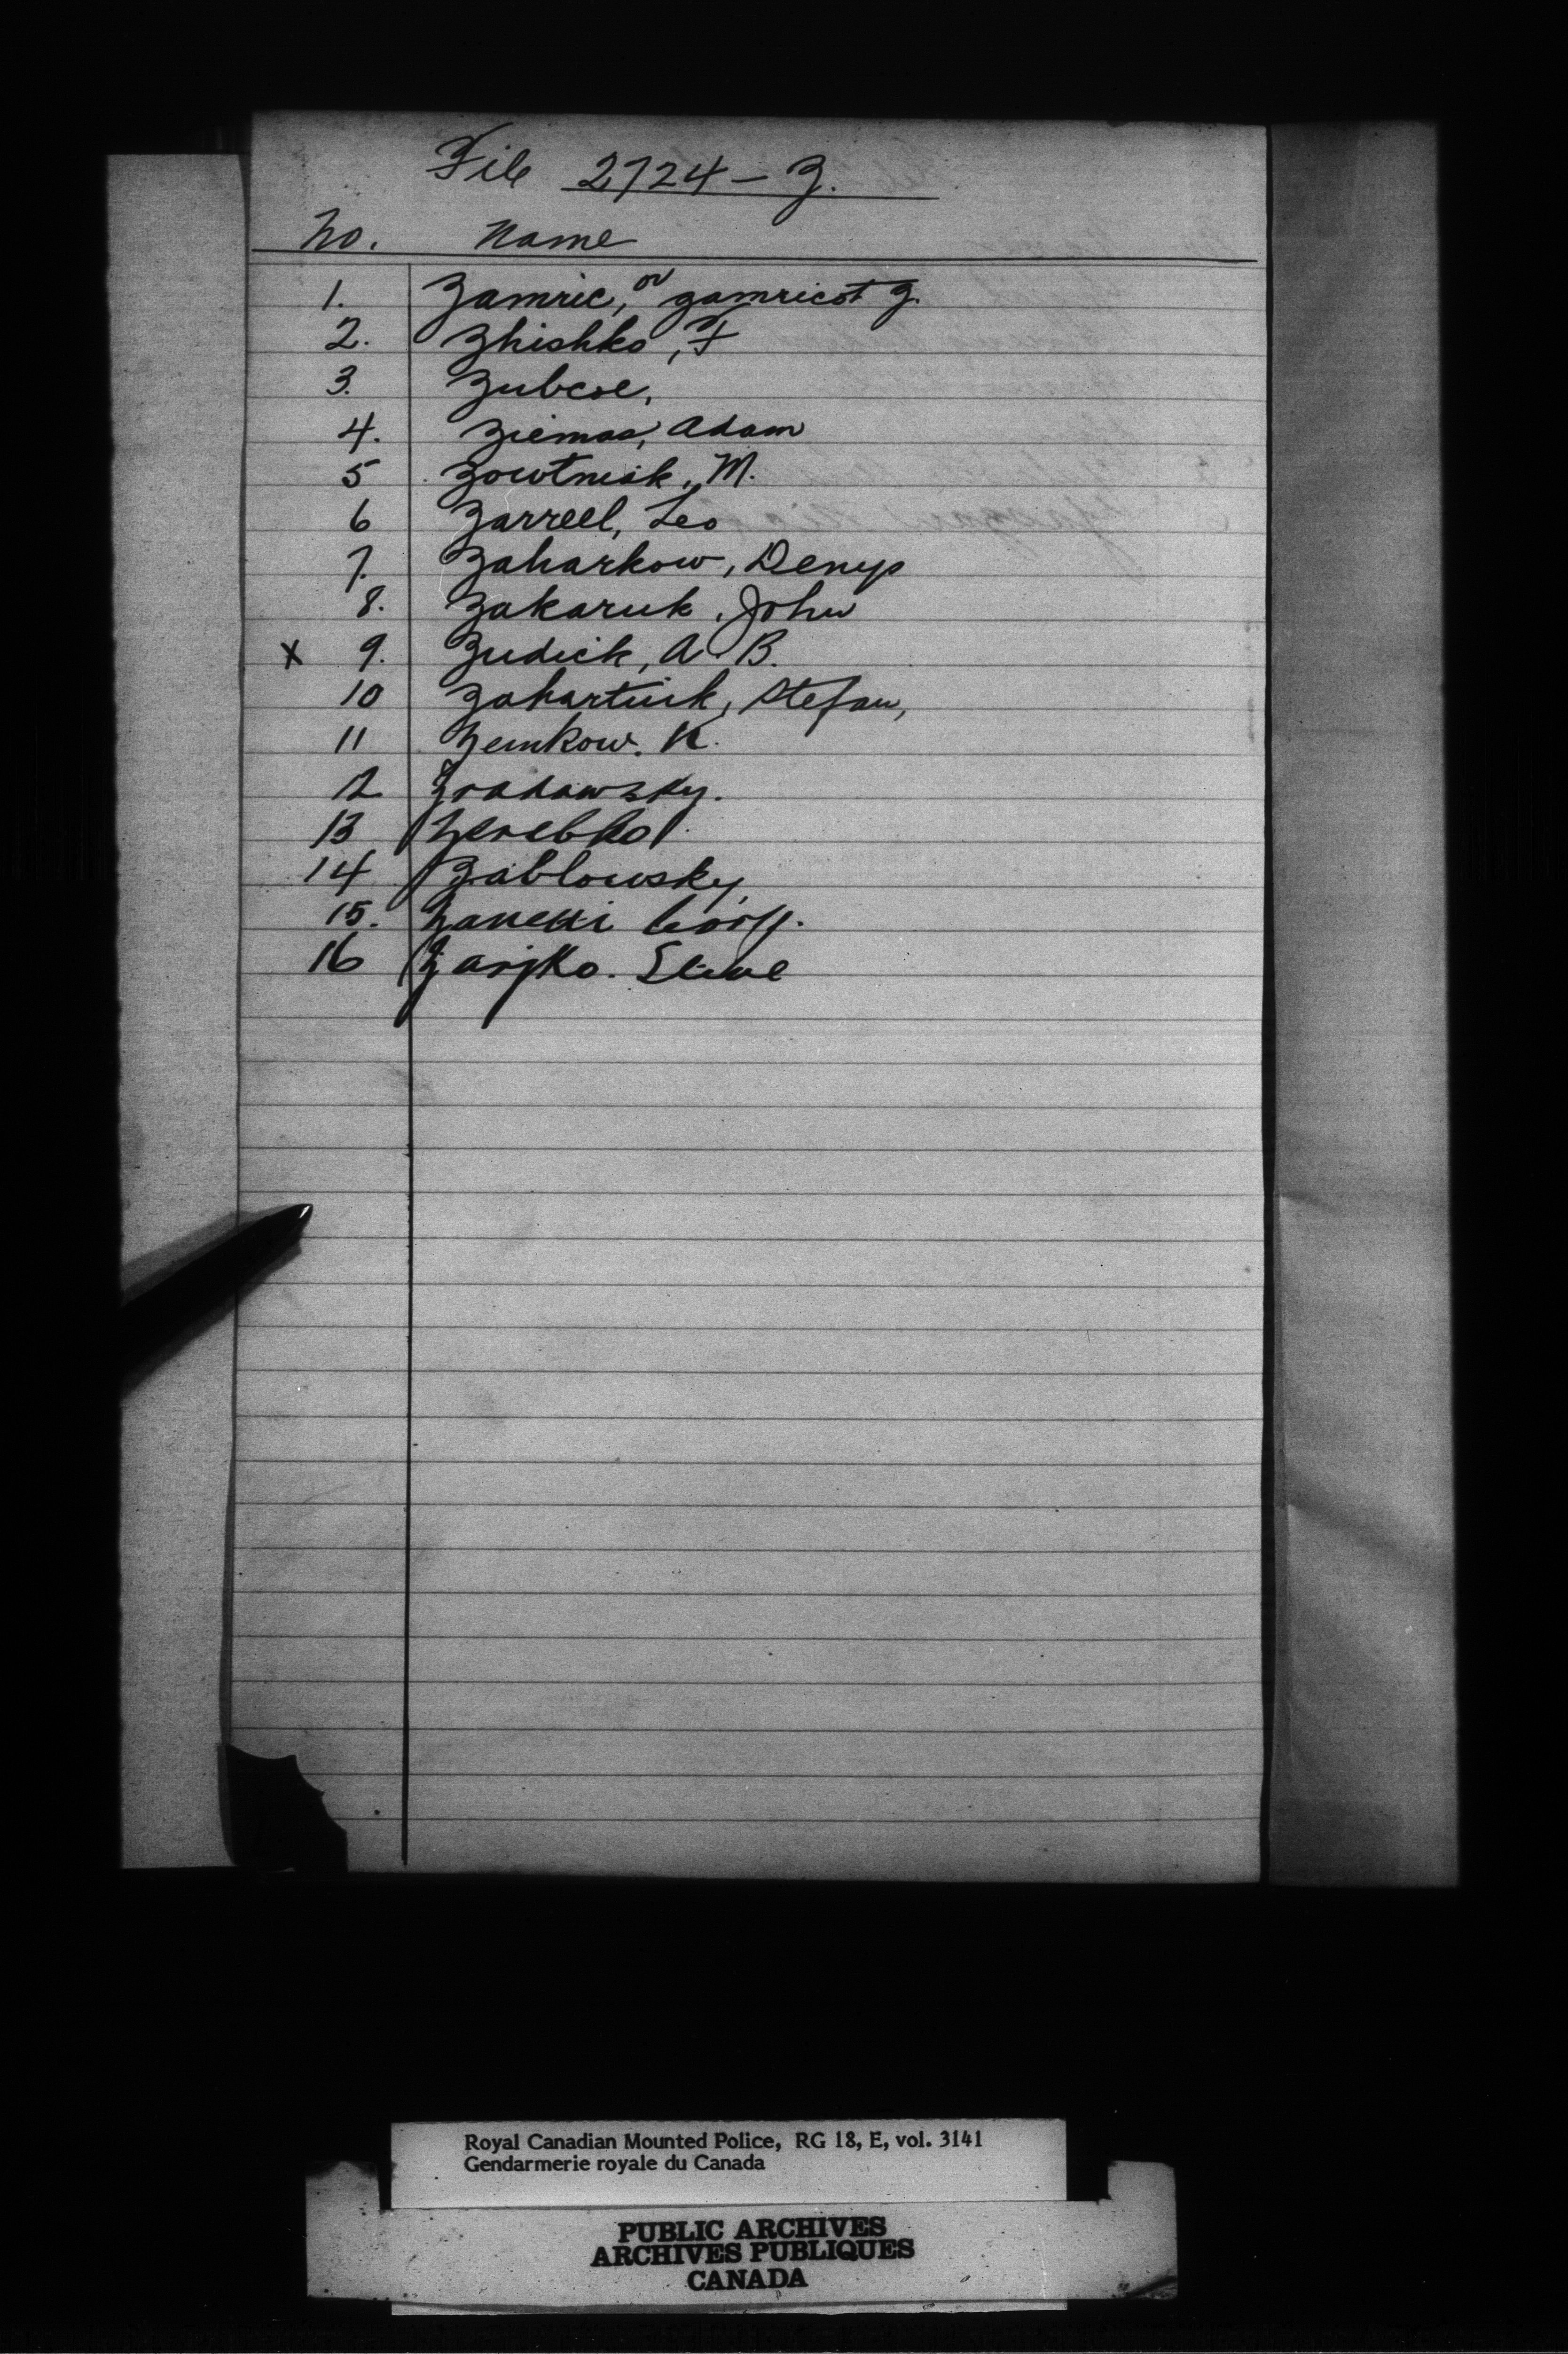 File 2724 - Z.
No. Name
1. Zamric, or Zamricot Z.
2. Zhishko, F
3. Zubcoe,
4. Ziemas, Adam
5 Zowtniak, M.
6 Zarreel, Leo
7. Zaharkow, Denys
8. Zakaruk, John
X 9. Zudick, A. B.
10 Zahartuik, Stefan,
11 Zemkow. K.
12 Zradawsky.
13 Zerebko
14 Zablowsky,
15. Zanecki
16 Zarjko. Steve
Royal Canadian Mounted Police, RG 18, E, vol. 3141
Gendarmerie royale du Canada
PUBLIC ARCHIVES
ARCHIVES PUBLIQUES
CANADA